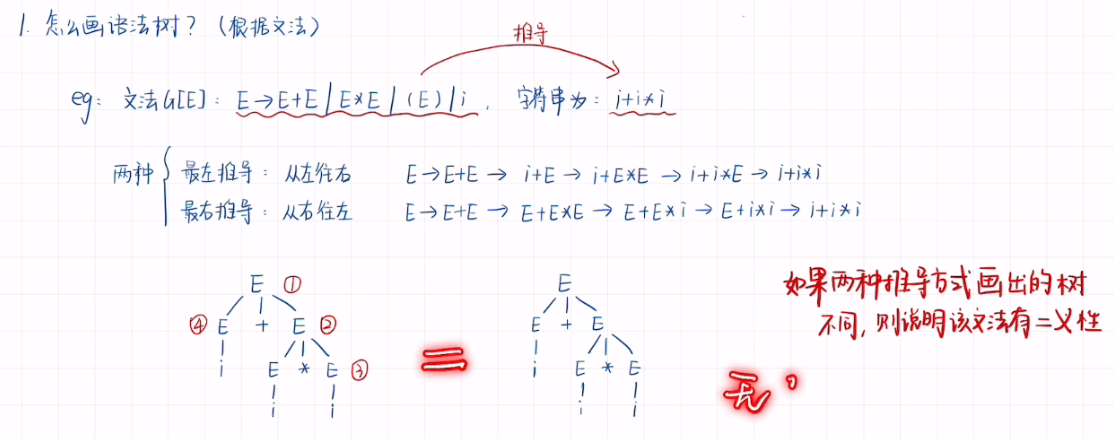 1. 怎么画语法树？（根据文法）
推导
eg: 文法G[E]: E→E+E | E*E | (E) | i , 字符串为: i+i*i
两种 { 最左推导: 从左往右 E→E+E → i+E → i+E*E → i+i*E → i+i*i
最右推导: 从右往左 E→E+E → E+E*E → E+E*i → E+i*i → i+i*i
E ① E
④ E + E ② E + E
i E * E ③ = i E * E
i i i i
如果两种推导方式画出的树
不同,则说明该文法有二义性
无